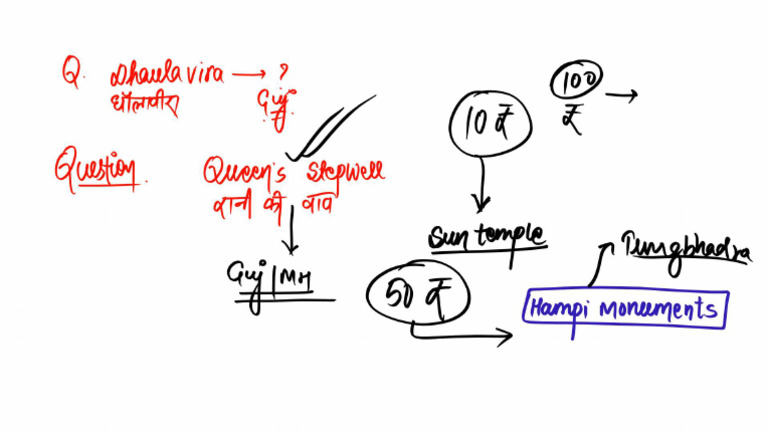 Q. Dhaulavira → ?
धौलावीरा Guj
Question. Queen's Stepwell
रानी की वाव
Guj/MH
10 ₹
100
₹ →
Sun temple
50 ₹
Tungbhadra
Hampi Monuments